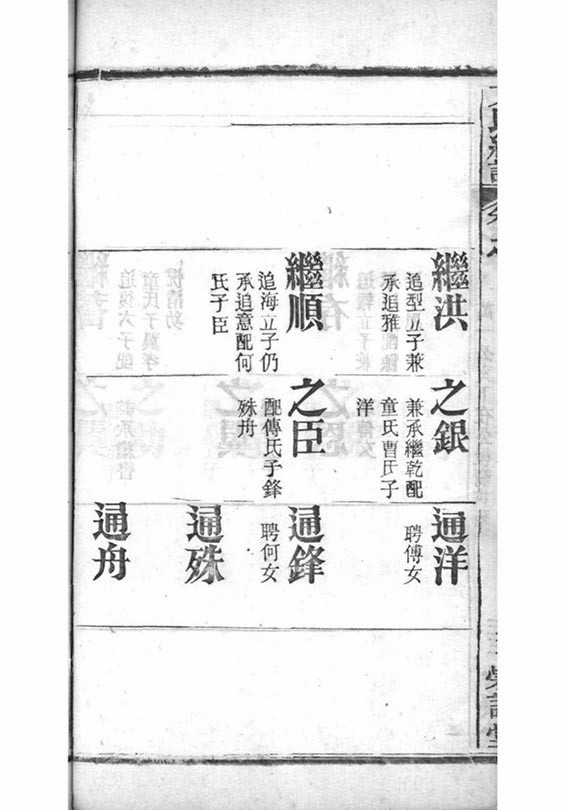 繼洪
追型立子兼
承追雅
之銀
兼承繼乾配
童氏曹氏子
洋
通洋
聘傅女
繼順
追海立子仍
承追意配何
氏子臣
之臣
配傅氏子鋒
殊舟
通鋒
聘何女
通殊
通舟